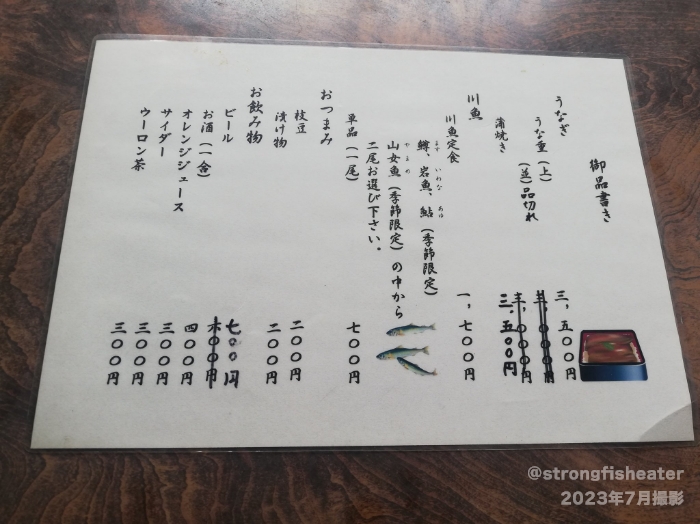 御品書き
うなぎ
うな重(上) 三、五〇〇円
(並)品切れ 三、〇〇〇円
蒲焼き 三、〇〇〇円 三、五〇〇円
川魚
川魚定食 一、七〇〇円
鱒、岩魚、鮎(季節限定)
ます いわな あゆ
山女魚(季節限定)の中から
やまめ
二尾お選び下さい。
単品(一尾) 七〇〇円
おつまみ
枝豆 二〇〇円
漬け物 二〇〇円
お飲み物
ビール 七〇〇円 六〇〇円
お酒(一合) 四〇〇円
オレンジジュース 三〇〇円
サイダー 三〇〇円
ウーロン茶 三〇〇円
@strongfisheater
2023年7月撮影